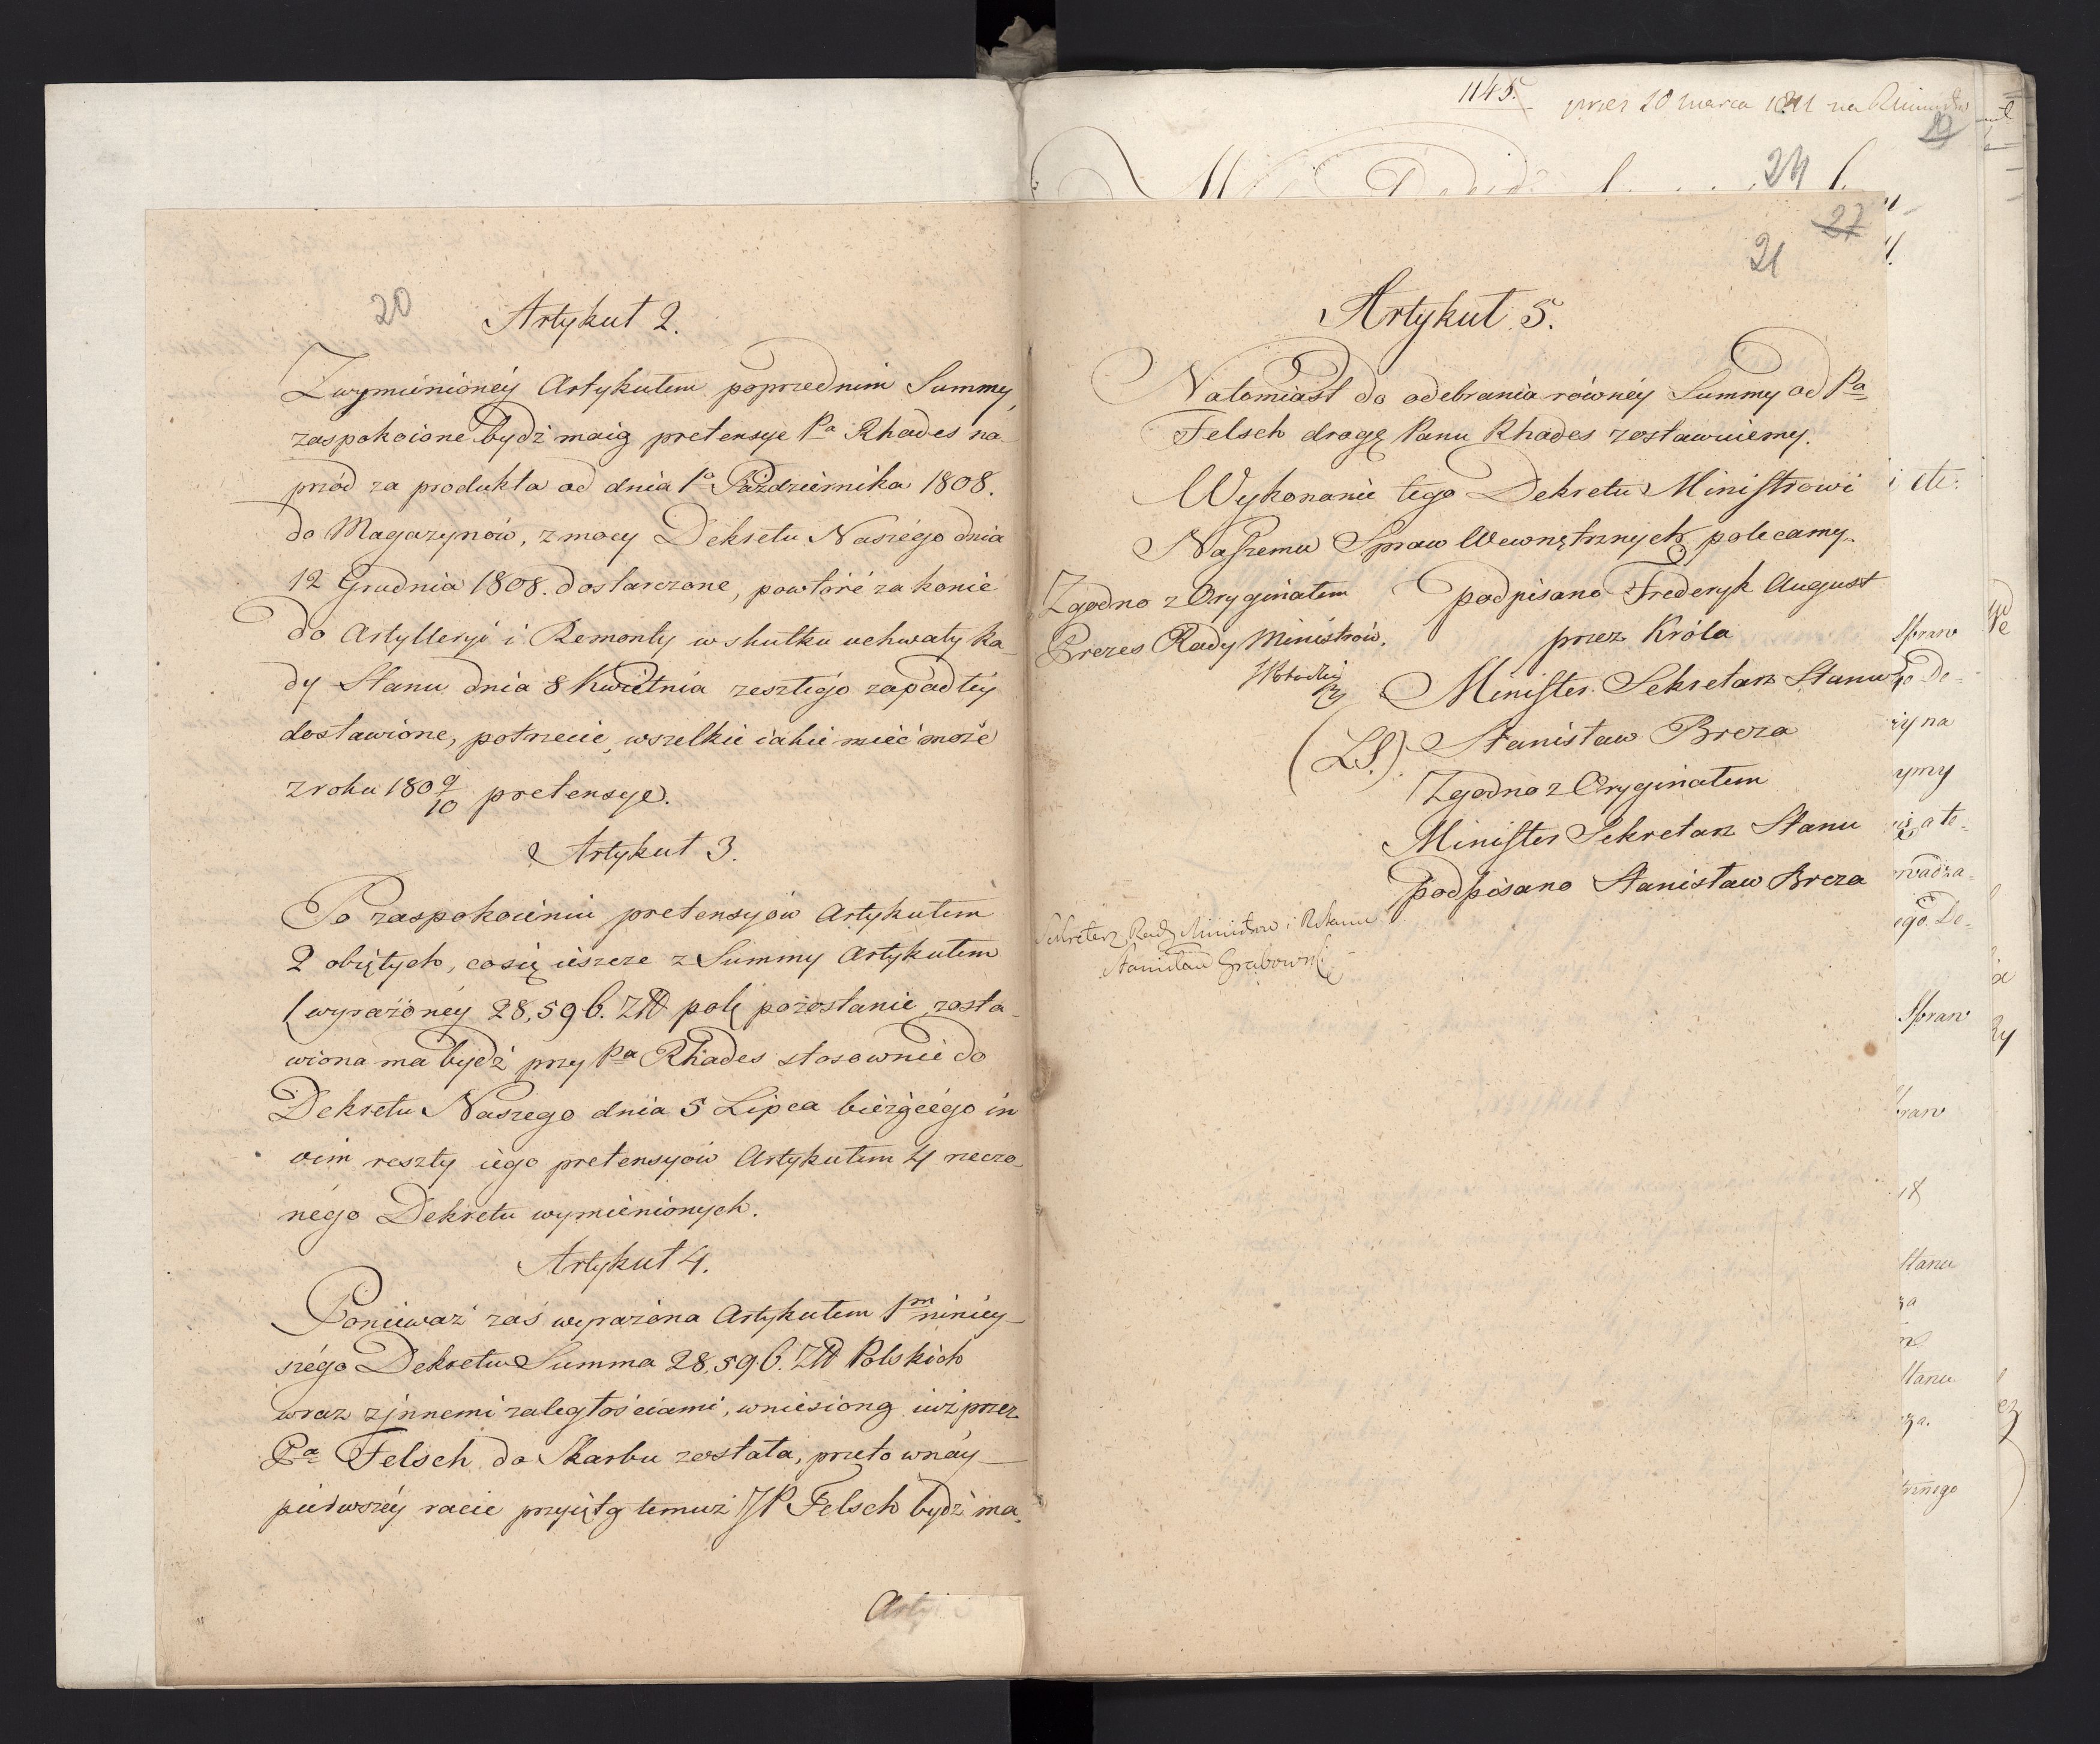 20
Artykuł 2.
Z wymienionéy Artykułem poprzednim Summy,
zaspokoione bydź maią pretensye Pa Rhades na-
przód za produkta od dnia 1o Października 1808.
do Magazynów, z mocy Dekretu Naszégo dnia
12 Grudnia 1808. dostarczone, powtóré za konie
do Artylleryi i Remonty w skutku uchwały Ra-
dy Stanu dnia 8 Kwietnia zeszłégo zapadłéy
dostawione, potrzecie, wszelkie iakie mieć może
z roku 1809/10 pretensye.
Artykuł 3.
Po zaspokoieniu pretensyów Artykułem
2 obiętych, co się ieszcze z Summy Artykułem
1 wyrażonéy 28,596. Złł polł pozostanie, zosta-
wiona ma bydź przy Pa Rhades stosownie do
Dekretu Naszego dnia 5 Lipca bieżącégo in
vim reszty iego pretensyów Artykułem 4 rzeczo-
négo Dekretu wymienionych.
Artykuł 4.
Ponieważ zaś wyrażona Artykułem 1m niniey-
szégo Dekretu Summa 28,596. Złł Polskich
wraz z jnnemi zaległościami, wniesioną iuż przez
Pa Felsch do Skarbu została, przeto w náy-
pierwszéy racie przyiętą temuż JP Felsch bydź ma.
Arty
1145.
przez 20 marca 1811 na
24
27
21
Artykuł 5.
Natomiast do odebrania równéy Summy od Pa
Felsch drogę Panu Rhades zostawuiemy.
Wykonanie tego Dekretu Ministrowi
Naszemu Spraw Wewnętrznych polecamy.
podpisano Frederyk August
przez Króla
Minister Sekretarz Stanu
(LS.) Stanisław Breza
Zgodno z Oryginałem
Minister Sekretarz Stanu
podpisano Stanisław Breza
Zgodno z Oryginałem
Prezes Rady Ministrów.
Sekretarz Rady Ministrów i RStanu
Stanisław Grabowski